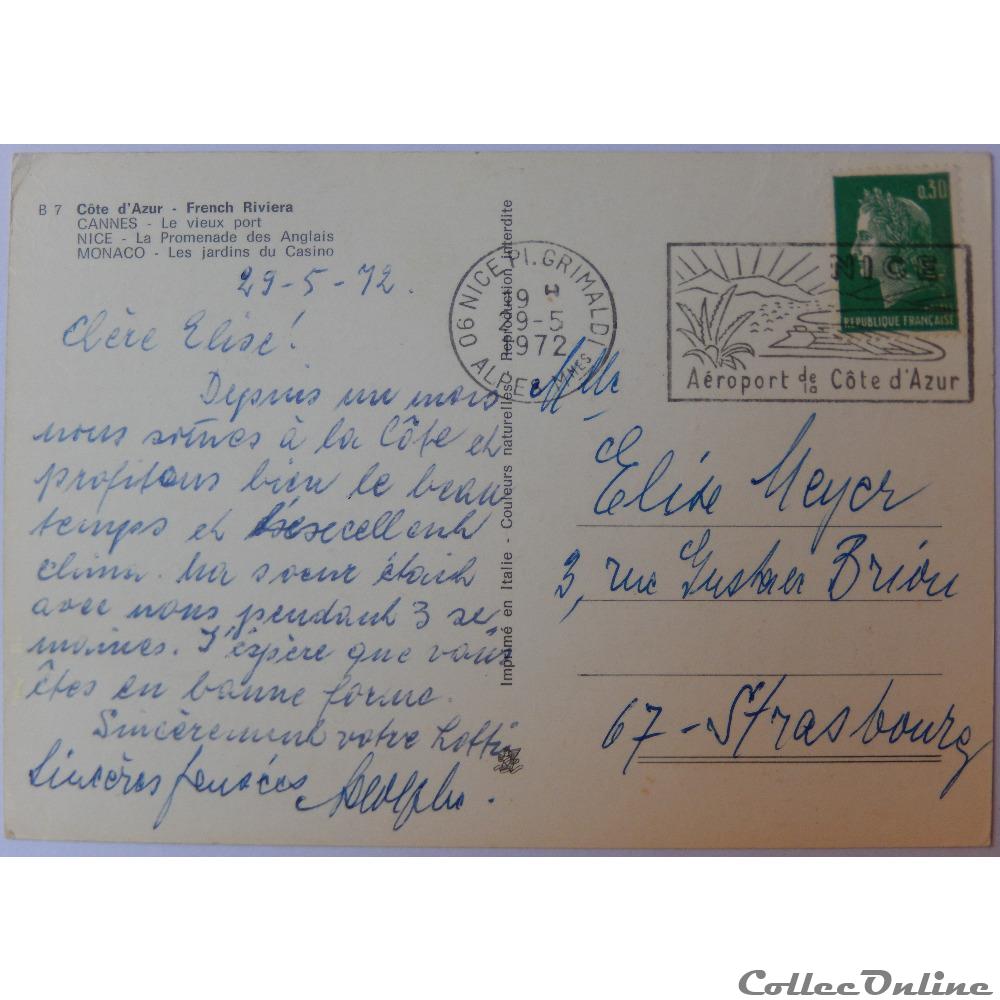 B 7 Côte d'Azur - French Riviera
CANNES - Le vieux port
NICE - La Promenade des Anglais
MONACO - Les jardins du Casino
29-5-72.
Chère Elise!
Depuis un mois
nous somes à la Côte et
profitons bien le beau
temps et l'excellent
climat. Ma soeur était
avec nous pendant 3 se
maines. J'espère que vous
êtes en bonne forme.
Sincèrement votre Lotti
Sincères pensées Adolphe.
Imprimé en Italie - Couleurs naturelles - Reproduction interdite
06 NICE Pl. GRIMALDI
9 H
29-5
1972
ALPES MMES
0,30
REPUBLIQUE FRANÇAISE
NICE
Aéroport de la Côte d'Azur
Mlle
Elise Meyer
3, rue Gustave Brion
67-Strasbourg
CollecOnline